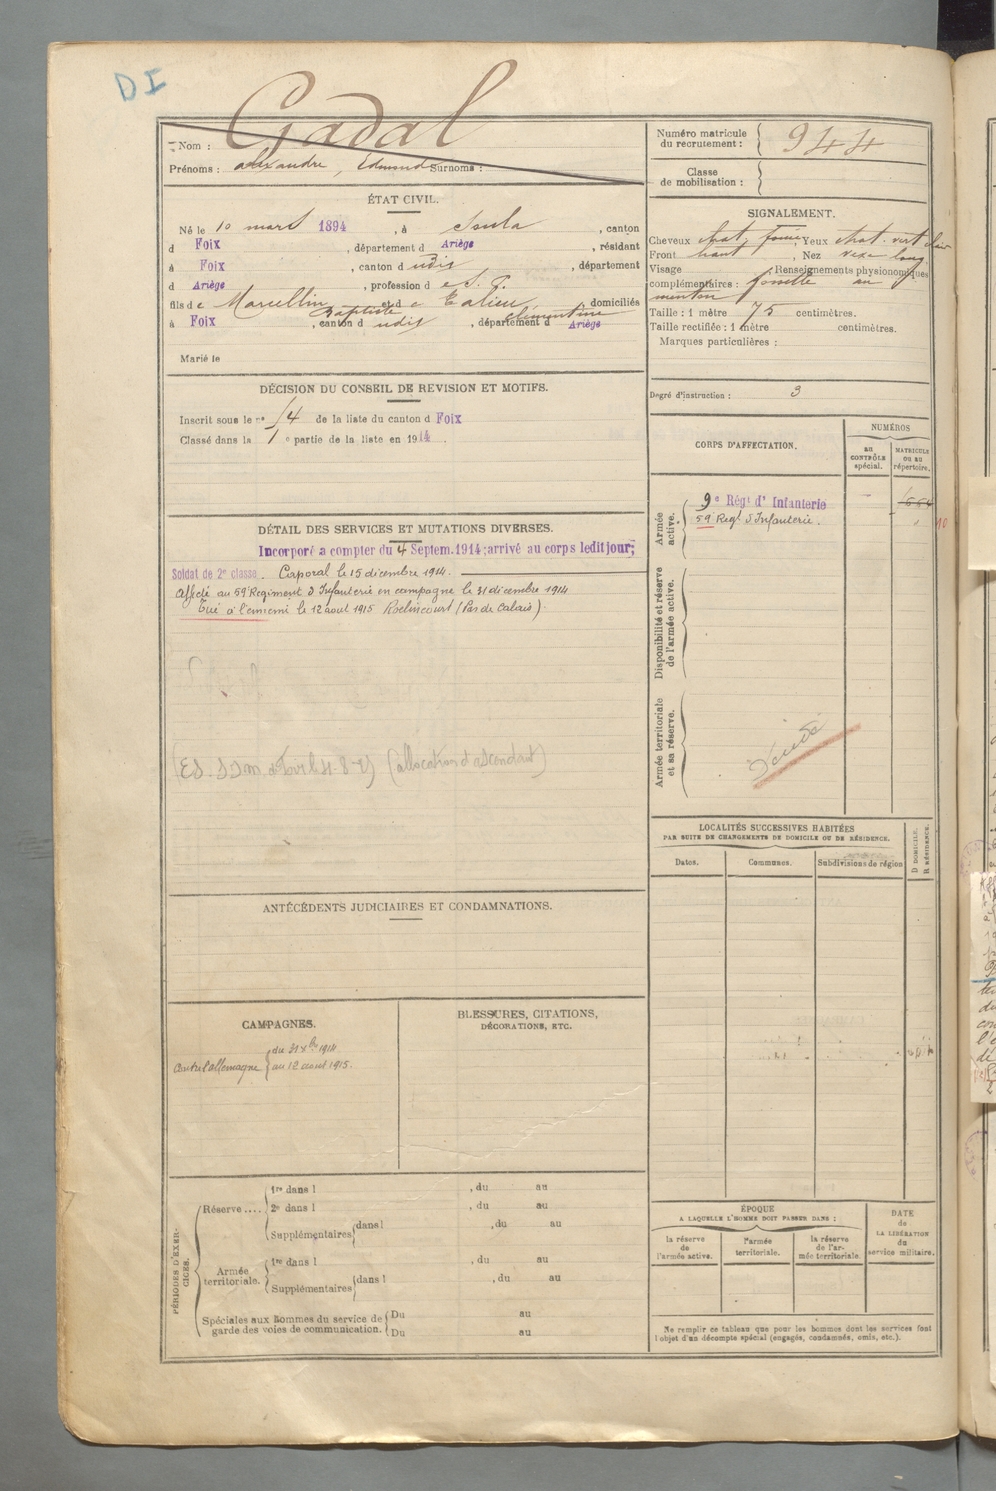 DI
Nom : Gadal
Prénoms : Alexandre, Edmond Surnoms :
Numéro matricule du recrutement : 944
Classe de mobilisation :
ÉTAT CIVIL.
Né le 10 mars 1894, à Soula, canton
d Foix, département d Ariège, résidant
à Foix, canton d udis, département
d Ariège, profession d e S. P.
fils de Marcellin Baptiste et d e Clémentine, domiciliés
à Foix, canton d udit, département d Ariège
Marié le
SIGNALEMENT.
Cheveux chat. foncé, Yeux chat. vert clair
Front haut, Nez long.
Visage Renseignements physionomiques
complémentaires : fossette au
menton
Taille : 1 mètre 75 centimètres.
Taille rectifiée : 1 mètre centimètres.
Marques particulières :
Degré d'instruction : 3
DÉCISION DU CONSEIL DE REVISION ET MOTIFS.
Inscrit sous le n° 14 de la liste du canton d Foix
Classé dans la 1e partie de la liste en 1914.
CORPS D'AFFECTATION.
NUMÉROS
au CONTRÔLE spécial.
MATRICULE ou au répertoire.
Armée active.
9e Régt d' Infanterie
59 Regt d'Infanterie.
Disponibilité et réserve de l'armée active.
Armée territoriale et sa réserve.
Décédé
DÉTAIL DES SERVICES ET MUTATIONS DIVERSES.
Incorporé a compter du 4 Septem. 1914; arrivé au corps ledit jour;
Soldat de 2e classe. Corporal le 15 décembre 1914.
Affecté au 59 Regiment d'Infanterie en campagne le 31 décembre 1914
Tué à l'ennemi le 12 aout 1915 Roclincourt (Pas de Calais)
(allocation d'ascendant)
LOCALITÉS SUCCESSIVES HABITÉES
PAR SUITE DE CHANGEMENTS DE DOMICILE OU DE RÉSIDENCE.
Dates. Communes. Subdivisions de région
D DOMICILE.
R RÉSIDENCE.
ANTÉCÉDENTS JUDICIAIRES ET CONDAMNATIONS.
CAMPAGNES.
Contre l'allemagne du 31 Xbre 1914
au 12 aout 1915.
BLESSURES, CITATIONS,
DÉCORATIONS, ETC.
PÉRIODES D'EXERCICES.
Réserve.... 1re dans l , du au
2e dans l , du au
Supplémentaires dans l , du au
Armée territoriale. 1re dans l , du au
Supplémentaires dans l , du au
Spéciales aux hommes du service de garde des voies de communication. Du au
Du au
ÉPOQUE
A LAQUELLE L'HOMME DOIT PASSER DANS :
la réserve de l'armée active.
l'armée territoriale.
la réserve de l'armée territoriale.
DATE de LA LIBÉRATION du service militaire.
Ne remplir ce tableau que pour les hommes dont les services font
l'objet d'un décompte spécial (engagés, condamnés, omis, etc.).